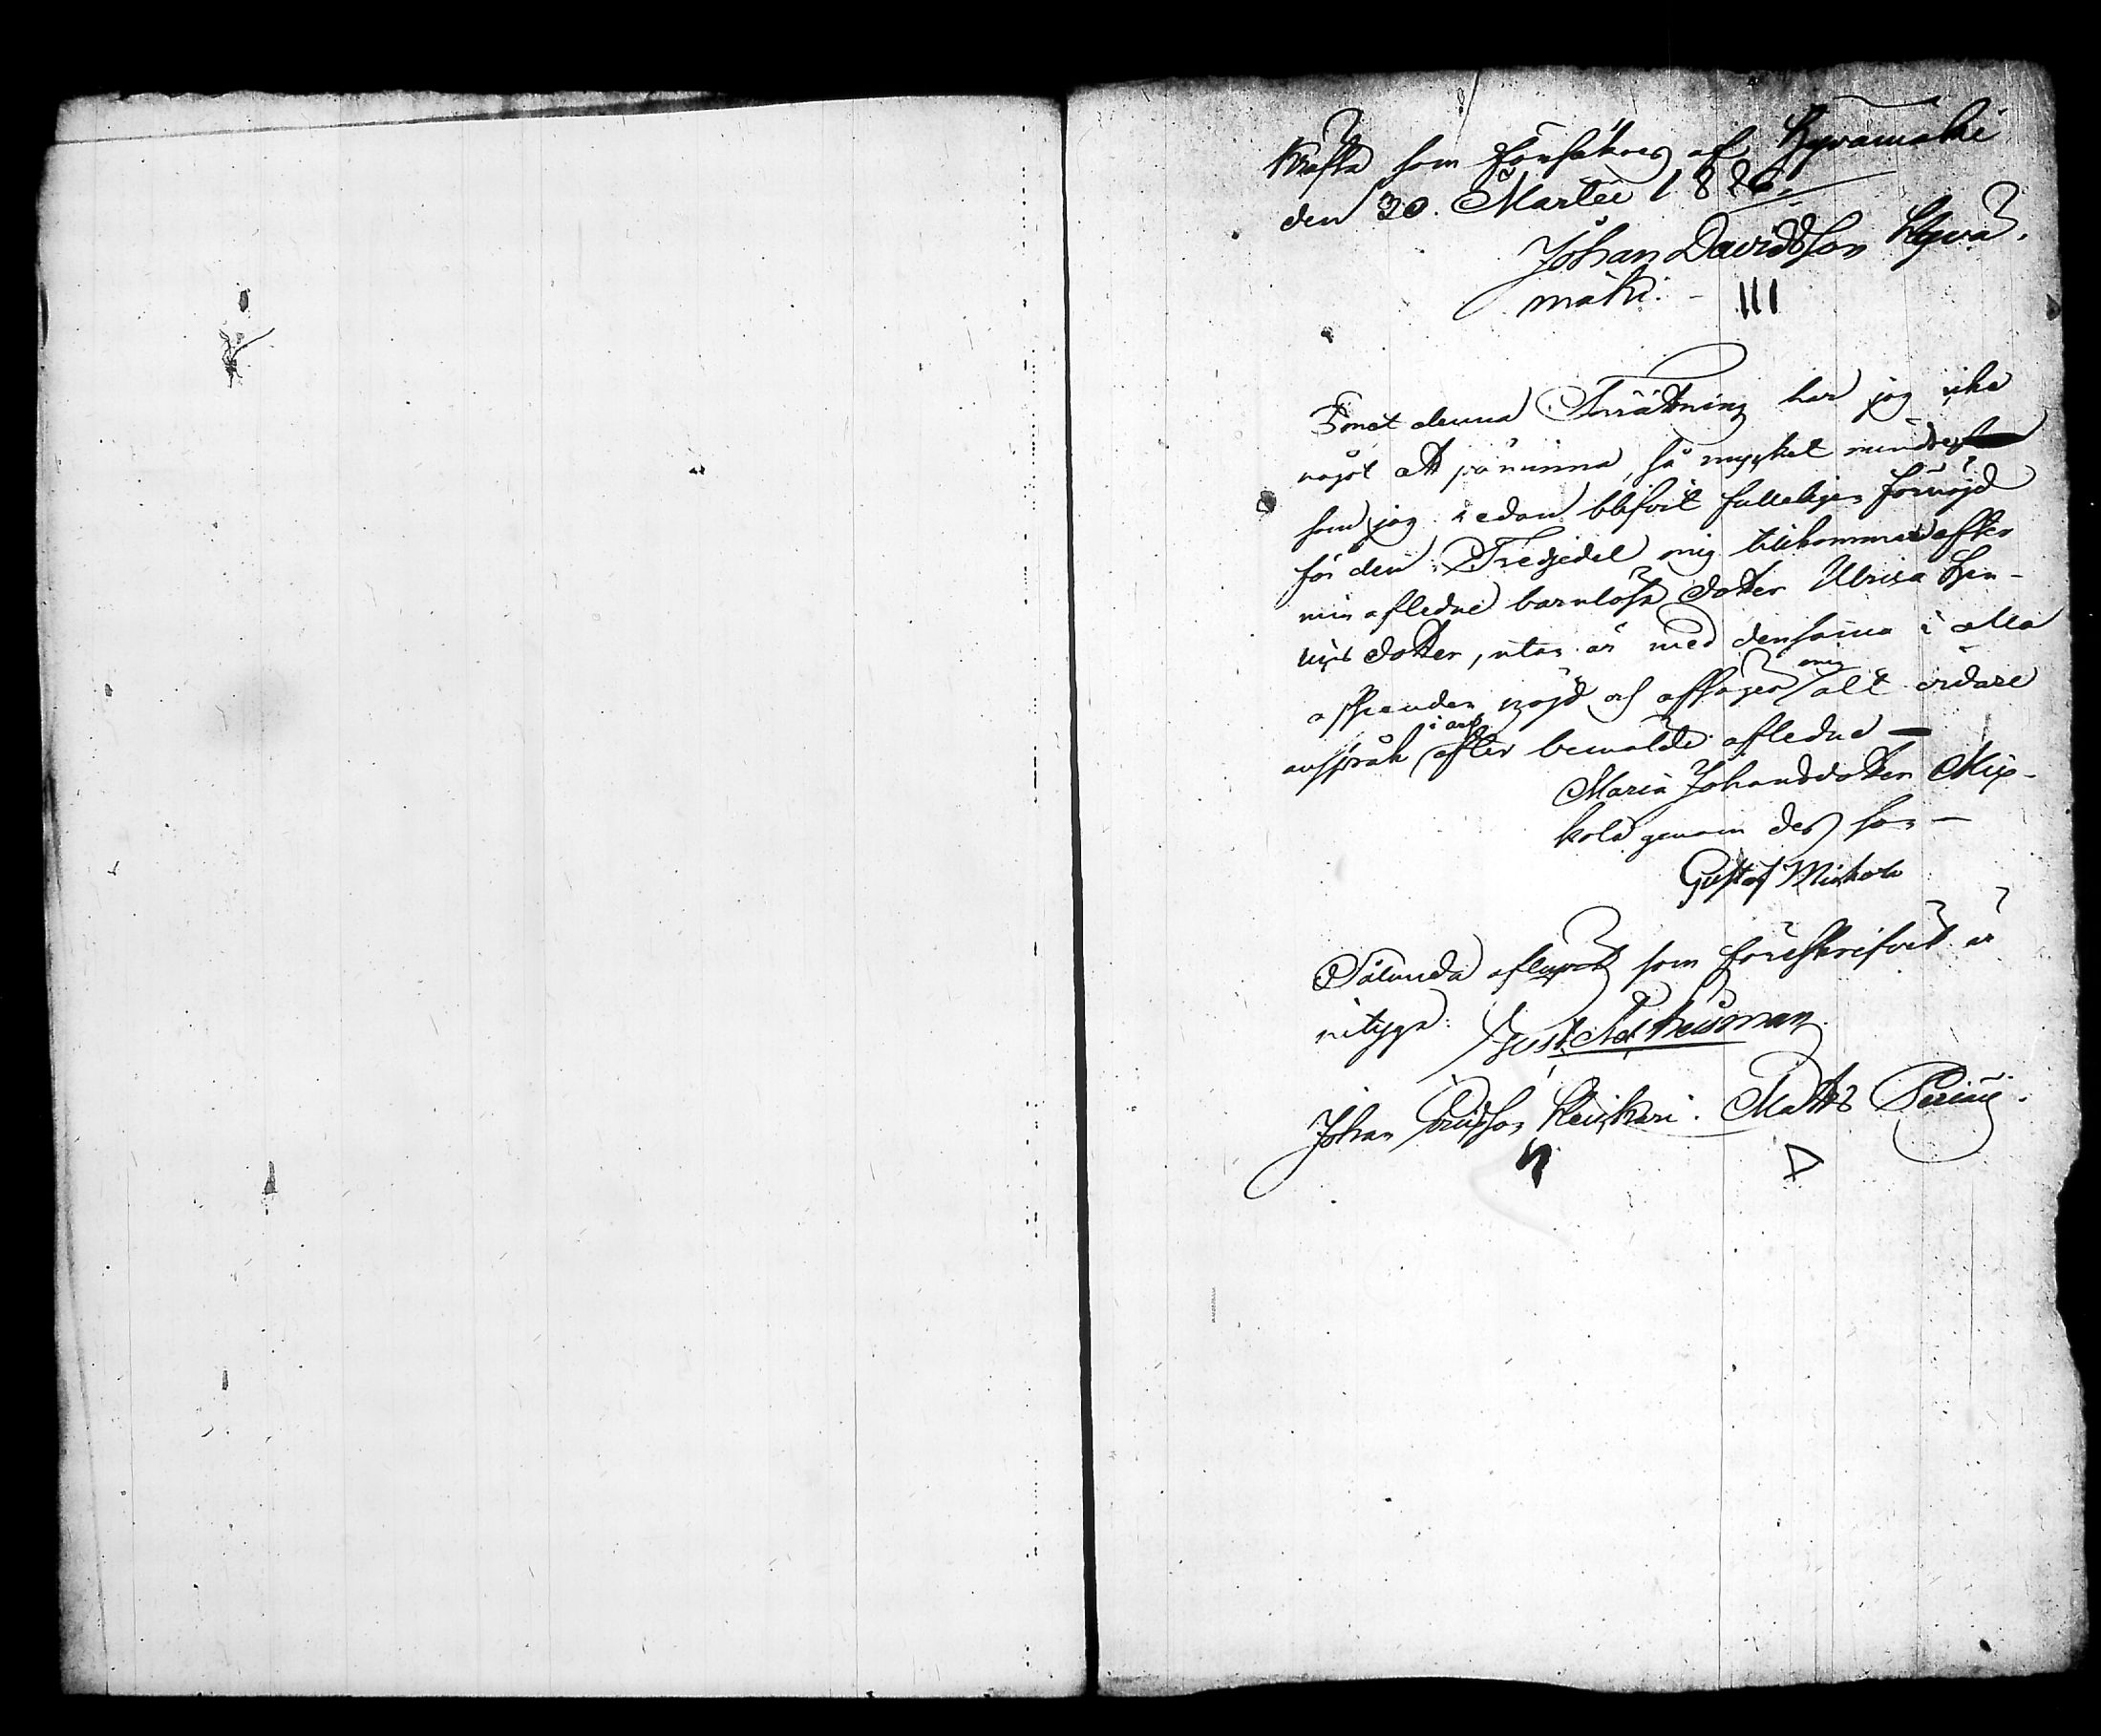 Kräfta som försäkras af Hyvämäki
den 30. Martii 1826.
Johan Davidsson Hyvä-
mäki. - III
Emot denna Förrättning har jag icke
något att påminna, så mycket mindre
som jag redan blifvit fulleligen förnöjd
för den Tredjedel mig tillkommer efter
min aflidne barnlösa dotter Ulrica Hen-
dotter, utan är med densamma i alla
afseenden nöjd och afsäger mig alt vidare
anspråk i arf efter bemälde aflidne —
Maria Johansdotter Mix-
kola genom des son —
Gustaf Mixkola
Sålunda aflupit som föreskrifvit är
intyga:
Johan Matts